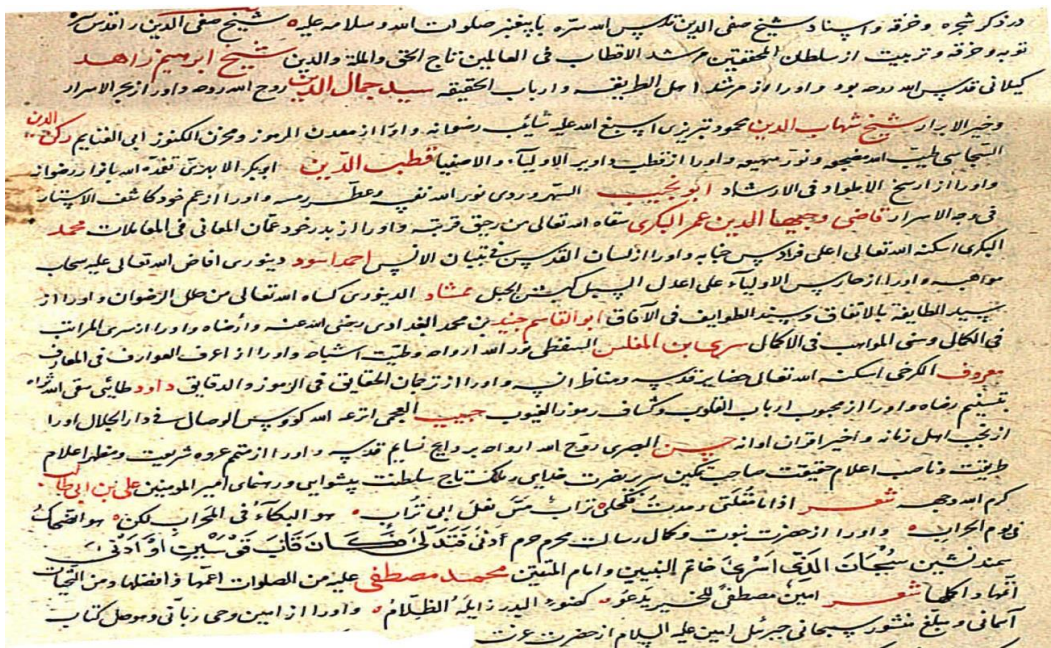 در ذکر شجره وخرقه واسناد شیخ صفی الدین قدس الله سره با پیغمبر صلوات الله وسلامه علیه شیخ صفی الدین را قدس
توبه وخرقه وتربیت از سلطان المحققین مرشد الاقطاب فی العالمین تاج الحق والملة والدین شیخ ابرهیم زاهد
کیلانی قدس الله روحه بود واورا از مرشد اهل الطریقه وارباب الحقیقه سید جمال الدین روح الله روحه واورا از بحر الاسرار
وخیر الابرار شیخ شهاب الدین محمود تبریزی اسبغ الله علیه شآبیب رضوانه واورا از معدن الرموز ومخزن الکنوز ابی الغنایم رکن الدین
السجاسی طیب الله مضجعه ونور مهجعه واورا از قطب دوایر الاولیاء والاصفیا قطب الدین ابوبکر الابهری تغمده الله بانوار رضوانه
واورا از ارسخ الاطواد فی الارشاد ابو نجیب السهروردی نور الله نفسه وعطر رمسه واورا از عم خود کاشف الاستار
فی وجه الاسرار قاضی وجیه الدین عمر البکری سقاه الله تعالی من رحیق قربته واورا از پدر خود عمان المعانی فی المعاملات محمد
البکری اسکنه الله تعالی اعلی فرادیس جنابه واورا از لسان القدس فی تبیان الانس احمد اسود دینوری افاض الله تعالی علیه سحاب
مواهبه واورا از حارس الاولیاء علی اعدل السبیل ممشاد الدینوری کساه الله تعالی من حلل الرضوان واورا از
سید الطایفة بالاتفاق وسند الطوایف فی الآفاق ابو القاسم جنید بن محمد البغدادی رضی الله عنه وأرضاه واورا از سری المراتب
فی الکمال وسنی المواهب فی الاکمال سری بن المغلس السقطی نور الله ارواحه وطیب اشباحه واورا از اعرف العوارف فی المعارف
معروف الکرخی اسکنه الله تعالی حضایر قدسه ومناظر انسه واورا از ترجمان الحقایق فی الرموز والدقایق داود طائی سقی الله ثراه
بتسنیم رضاه واورا از محبوب ارباب القلوب وکشاف رموز الغیوب حبیب العجمی اترعه الله کووس الوصال فی دار الجلال اورا
از نخب اهل زمانه واخیر اقران اوانه حسن البصری روح الله ارواحه بروایح نسایم قدسه واورا از متمم عروه شریعت ومظهر اعلام
طریقت وناصب اعلام حقیقت صاحب تمکین سریر حضرت خدایی وملکت تاج سلطنت پیشوایی ورهنمای امیر المومنین علی بن ابی طالب
کرم الله وجهه شعر اذا ما مقلتی رمدت فکحلی تراب مس نعل ابی تراب هو البکاء فی المحراب لکن هو الضحاک
فی یوم الحراب واورا از حضرت نبوت وکمال رسالت محرم حرم أدنی فتدلی فکان قاب قوسین أو أدنی
سمند نشین سبحان الذی اسری خاتم النبیین وامام المتقین محمد مصطفی علیه من الصلوات اعمها وافضلها ومن التحیات
اتمها واکملها شعر امین مصطفی للخیر یدعو کضوء البدر زایله الظلام واورا از امین وحی ربانی وموصل کتاب
آسمانی ومبلغ منشور سبحانی جبرئیل امین علیه السلام از حضرت عزت